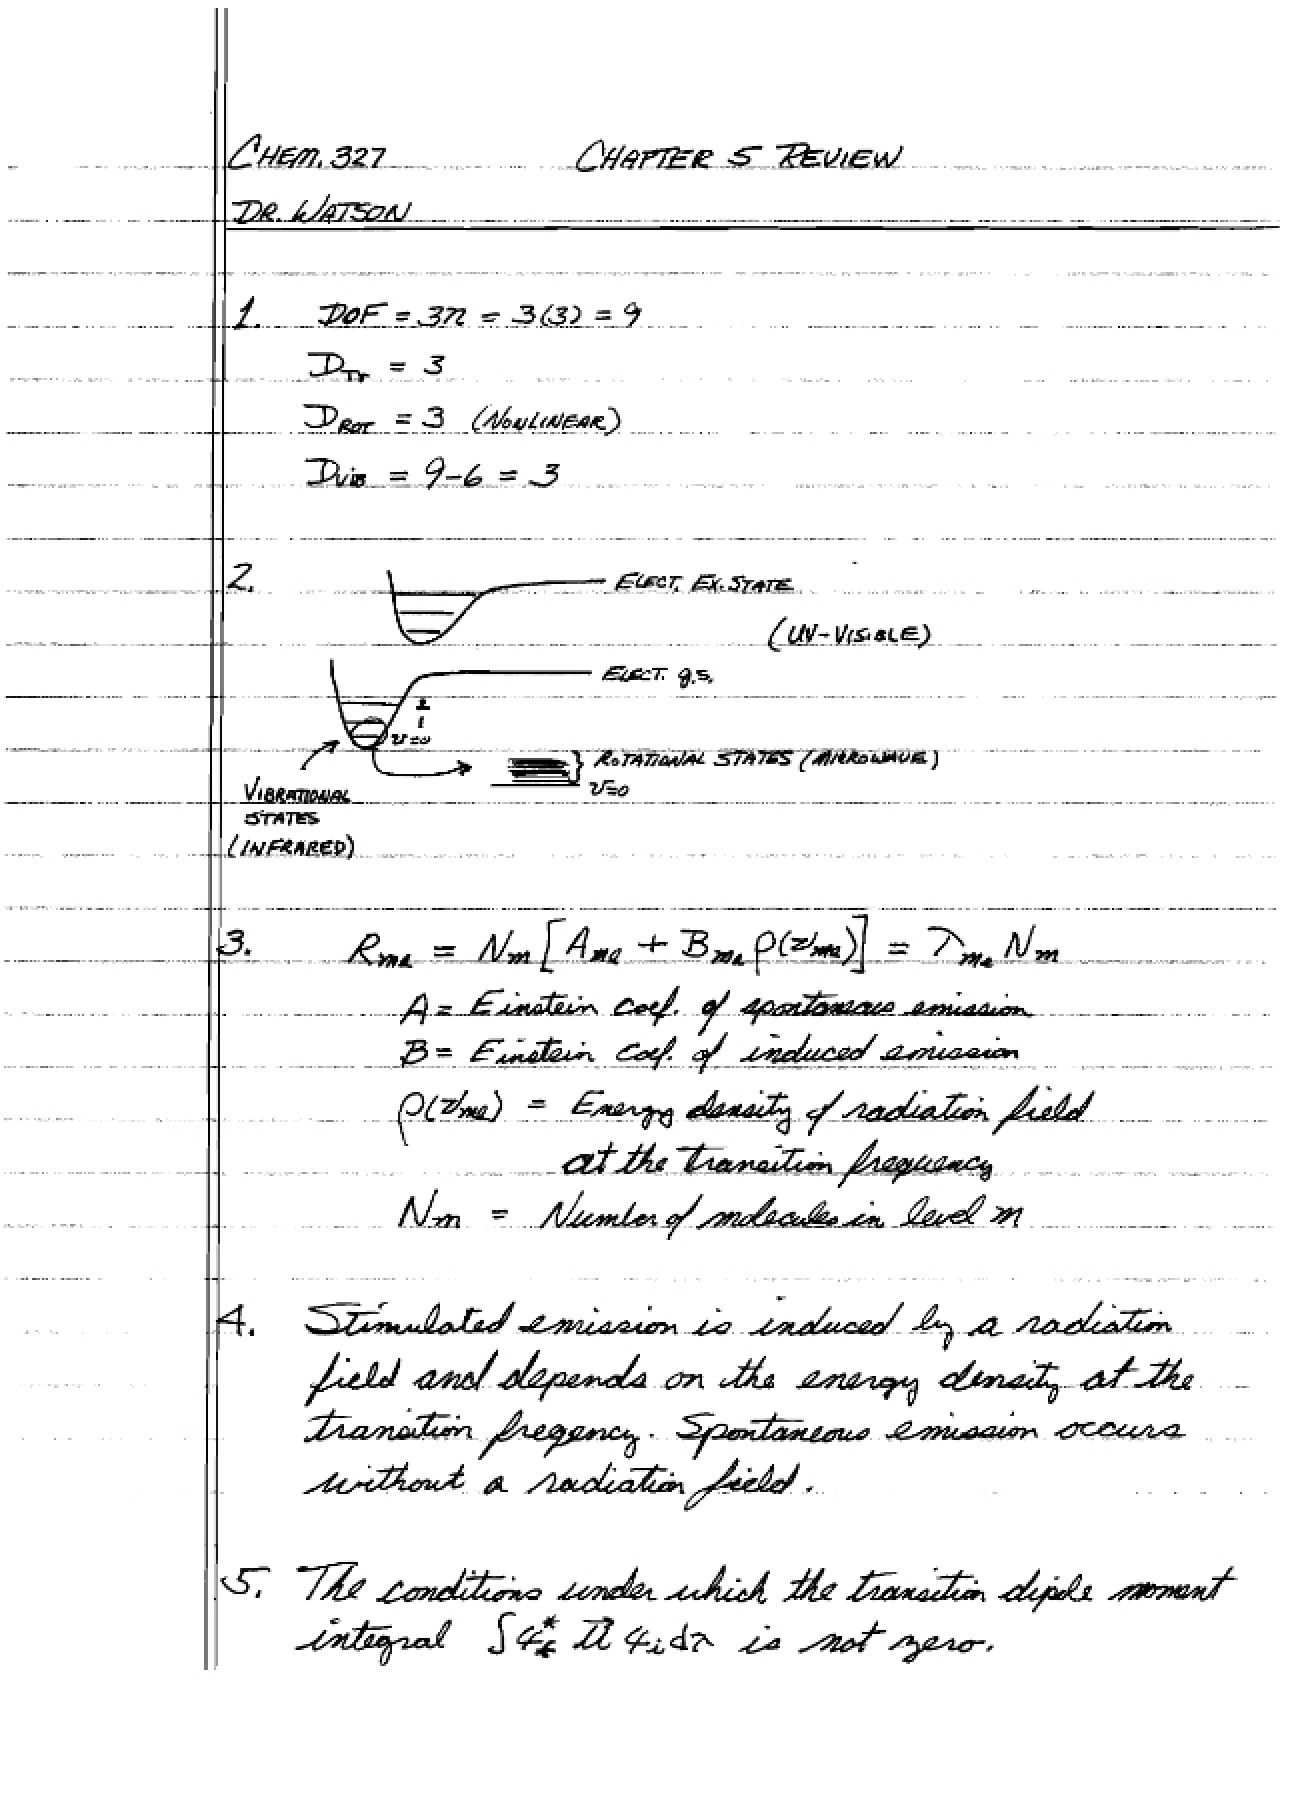 CHEM. 327 CHAPTER 5 REVIEW
DR. WATSON
1. DOF = 3n = 3(3) = 9
D_Tr = 3
D_ROT = 3 (NONLINEAR)
D_VIB = 9-6 = 3
2.
ELECT. EX. STATE
(UV-VISIBLE)
ELECT. g.s.
2
1
v=0
ROTATIONAL STATES (MICROWAVE)
v=0
VIBRATIONAL
STATES
(INFRARED)
3. R_mn = N_m [A_mn + B_mn ρ(ν_mn)] = λ_mn N_m
A = Einstein coef. of spontaneous emission
B = Einstein coef. of induced emission
ρ(ν_mn) = Energy density of radiation field
at the transition frequency
N_m = Number of molecules in level m
4. Stimulated emission is induced by a radiation
field and depends on the energy density at the
transition freqency. Spontaneous emission occurs
without a radiation field.
5. The conditions under which the transition dipole moment
integral ∫ψ_f* μ⃗ ψ_i dτ is not zero.